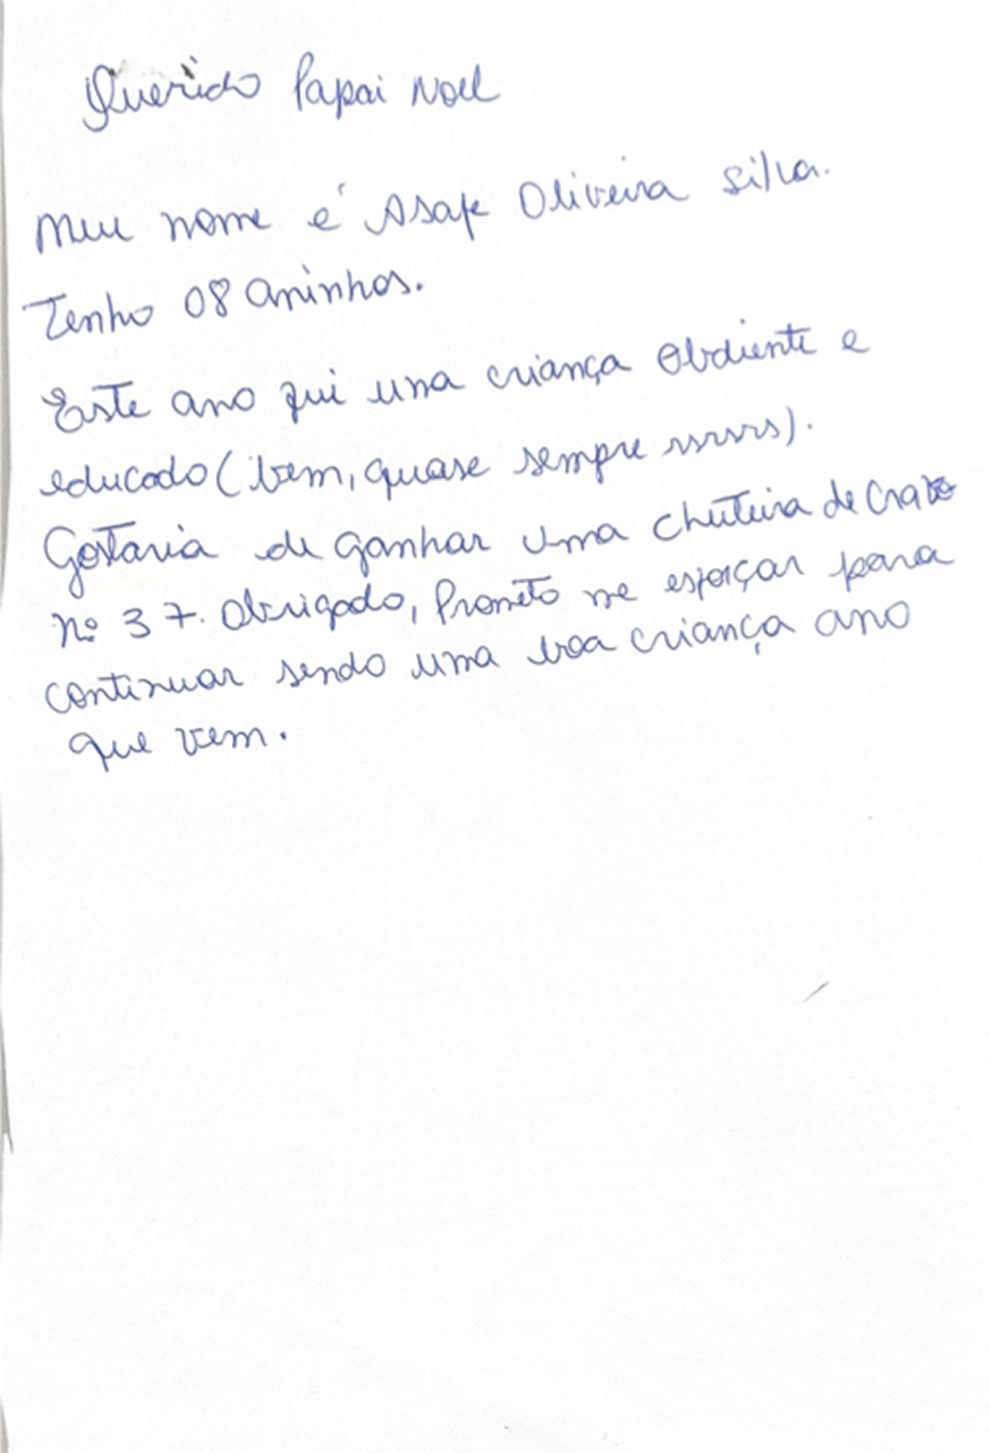 Querido Papai Noel
Meu nome é Asafe Oliveira Silva.
Tenho 08 aninhos.
Este ano fui uma criança obdiente e
educado (bem, quase sempre rsrsrs).
Gostaria de ganhar uma chuteira de cravo
nº 37. Obrigado, Prometo me esforçar para
continuar sendo uma boa criança ano
que vem.